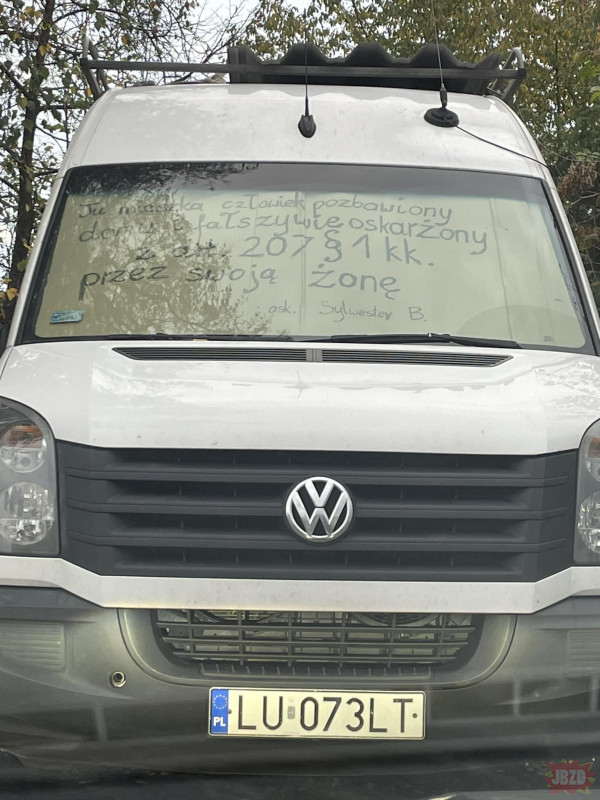 Tu mieszka człowiek pozbawiony
domu i fałszywie oskarżony
z art. 207 § 1 kk.
przez swoją żonę
osk. Sylwester B.
PL LU 073LT
JBZD